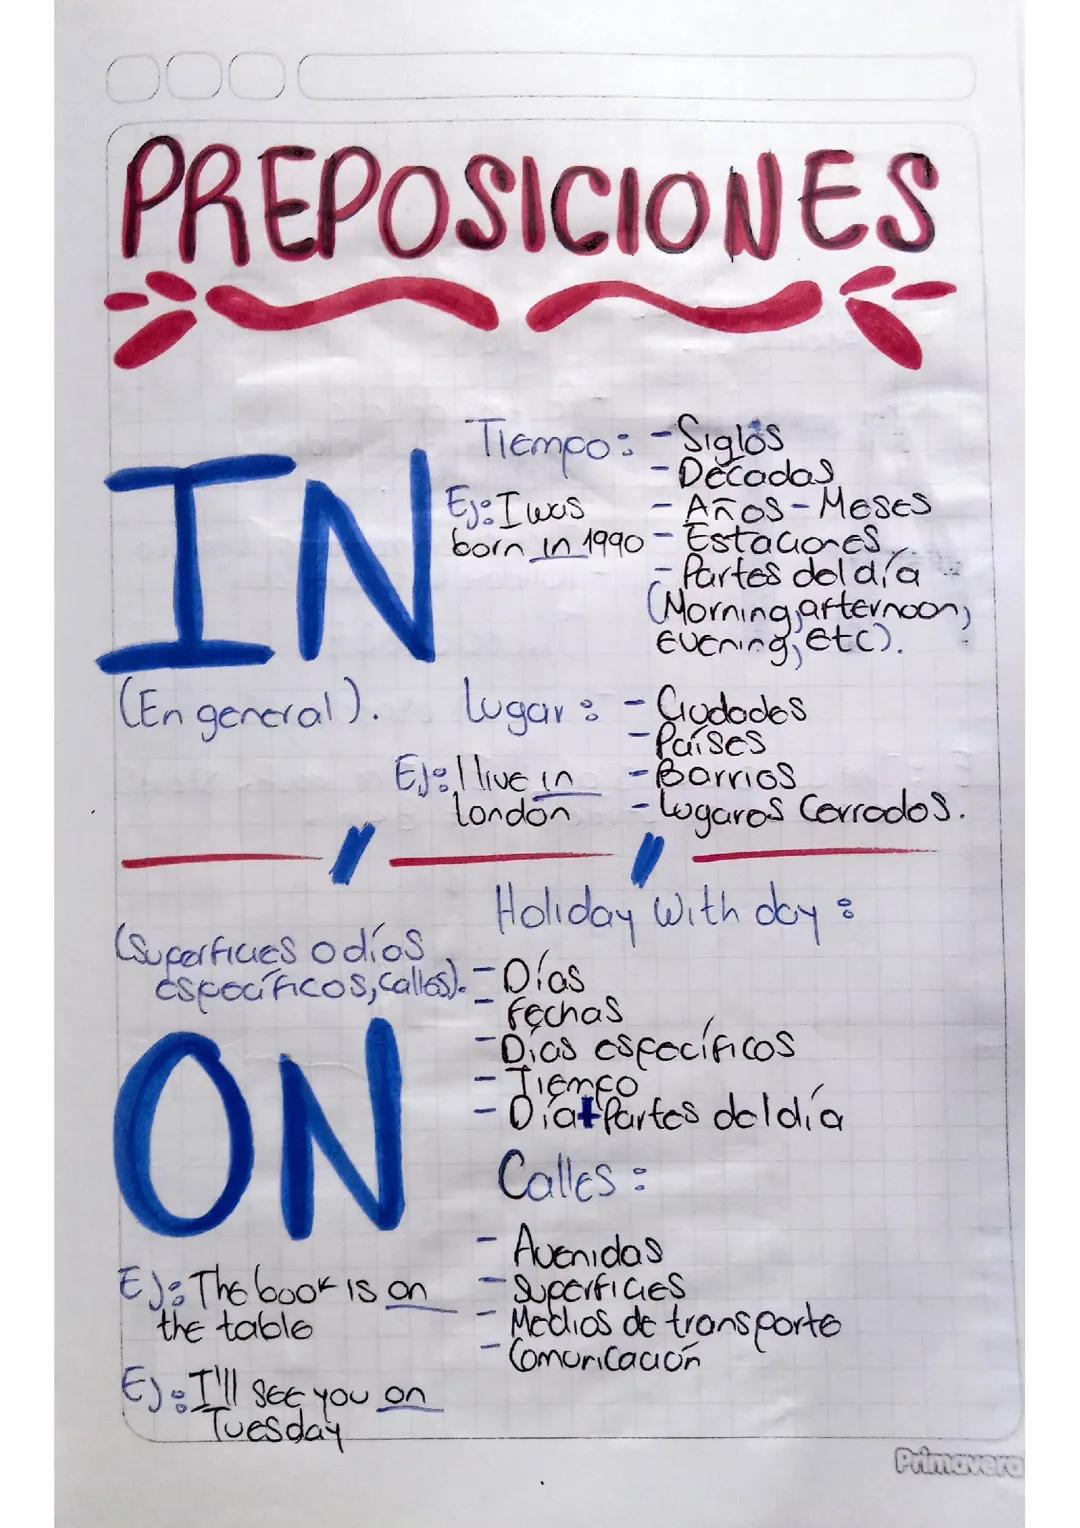 PREPOSICIONES
IN
(En general).
Tiempo:
- Siglos
- Décadas
- Años - Meses
- Estaciones
- Partes del día
(Morning, afternoon,
evening, etc).
Ej: I was
born in 1990
Lugar:
- Ciudades
- Países
- Barrios
- Lugares Cerrados.
Ej: I live in
London
(Superficies o días
específicos, calles).
ON
Holiday with day:
- Días
- Fechas
- Días específicos
- Tiempo
- Día + Partes del día
Calles:
- Avenidas
- Superficies
- Medios de transporte
- Comunicación
Ej: The book is on
the table
Ej: I'll see you on
Tuesday
Primavera